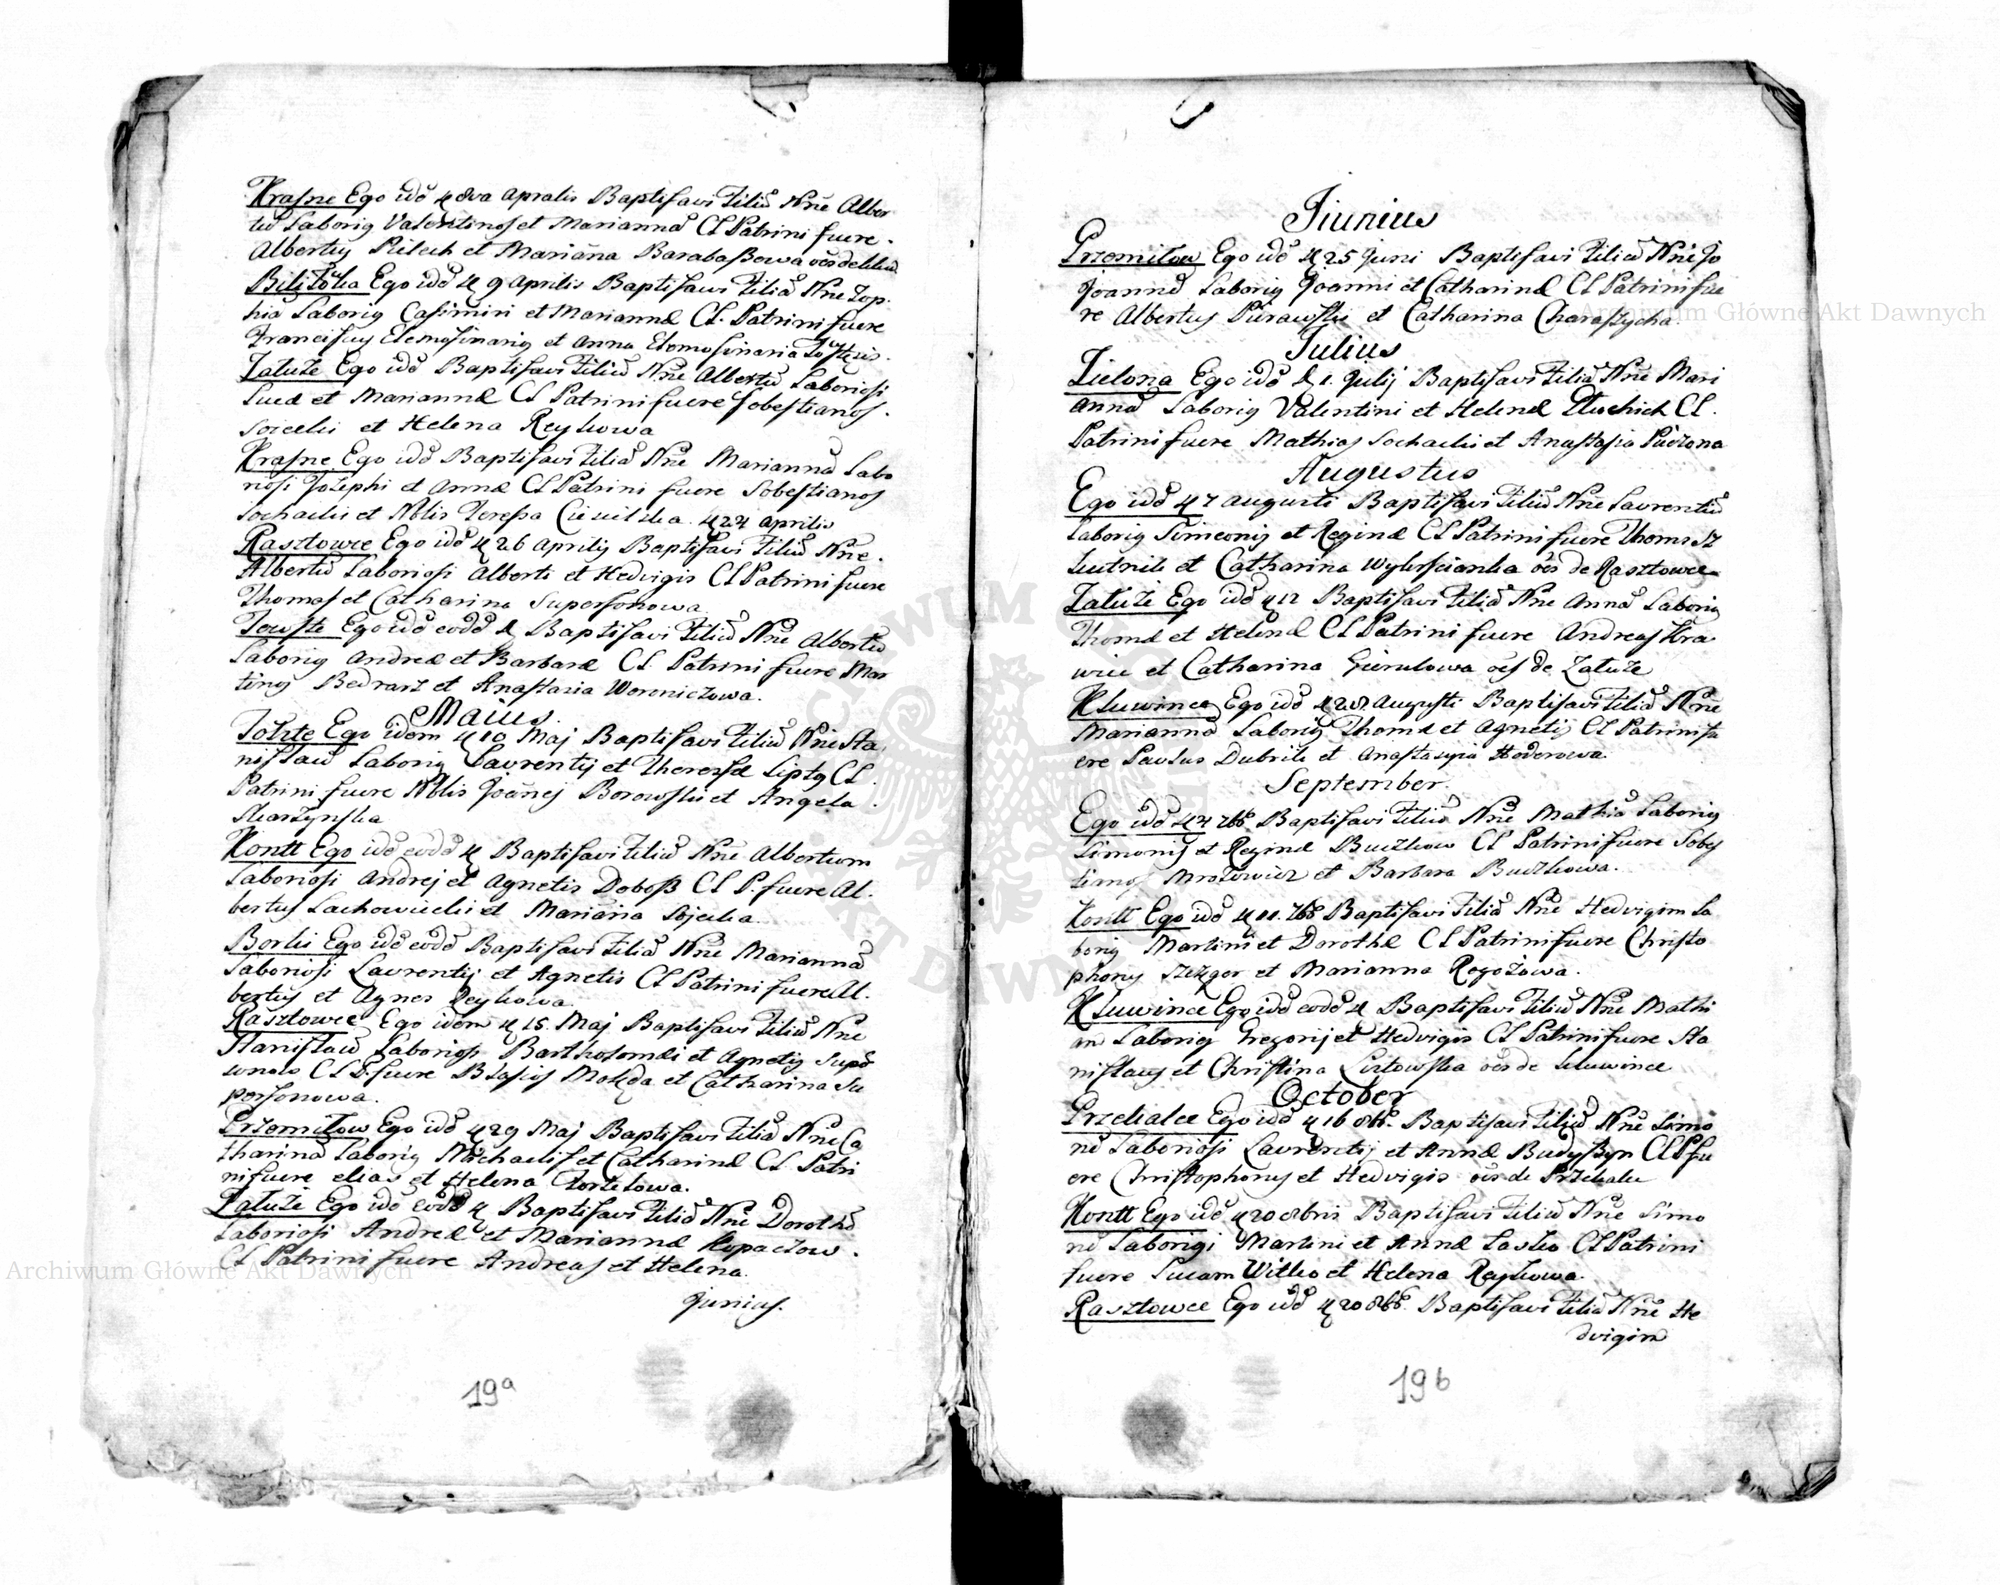 Krasne Ego idē 8va Apralis Baptisavi Filiū Nñe Alber
tū Laboriȝ Valentinoȝ et Mariannæ CL Patrini fuere.
Albertuȝ et Mariāna Barabaßowa
Ego idē 9 Aprilis Baptisavi Filiā Nñe Zop-
hia Laboriȝ Casimiri et Mariannæ CL. Patrini fuere
Franciscuȝ Elemosinariȝ et Anna Elemosinaria
Zatuże Ego idē Baptisavi Filiū Nñe Albertū Laboriosi
Lucæ et Mariannæ CL Patrini fuere Sobestianoȝ
et Helena Reykowa
Krasne Ego idē Baptisavi Filiā Nñe Mariannā Labo
riosi Josephi et Annæ CL Patrini fuere Sobestianoȝ
Sochacki et Nblis Teressa 24 Aprilis
Rasztowce Ego idē 26 Apriliȝ Baptisavi Filiū Nñe.
Albertū Laboriosi Alberti et Hedvigis CL Patrini fuere
Thomaȝ et Catharina Supersonowa
Towste Ego idē eodē Baptisavi Filiū Nñe Albertū
Laboriȝ Andreæ et Barbaræ CL Patrini fuere Mar
tinȝ Bednarz et Anastazia Woroniczowa.
Maius.
Ego idem 10 Maj Baptisavi Filiū Nñe Sta
nislaū Laboriȝ Laurentij et Theressæ CL.
Patrini fuere Nblis Joāneȝ Borowski et Angela.
Skarżynska
Kontt Ego idē eodē Baptisavi Filiū Nñe Albertum
Laboriosi Andrej et Agnetis Doboß CL P. fuere Al-
bertuȝ Lachowiecki et Mariāna
Borki Ego idē eodē Baptisavi Filiā Nñe Mariannā
Laboriosi Laurentij et Agnetis CL Patrini fuere Al-
bertuȝ et Agnes Reykowa.
Rasztowce Ego idem 15 Maj Baptisavi Filiū Nñe
Stanislaū Laboriosi Bartholomæi et Agnetiȝ Supor
sonow CL P. fuere Blasius et Catharina Su
personowa.
Przemitow Ego idē 29 Maj Baptisavi Filiā Nñe Ca
tharinā Laboriȝ Michaelis et Catharinæ CL. Patri
ni fuere elias et Helena
Zatuże Ego idē eodē Baptisavi Filiā Nñe Dorothē
Laboriosi Andreæ et Mariannæ Kopaczow.
CL Patrini fuere Andreaȝ et Helena.
Juniuȝ.
19a
Jiunius
Przemitow Ego idē 25 Juni Baptisavi Filiū Nñe Jo
Joannē Laboriȝ Joanni et Catharinæ CL Patrini fue
re Albertuȝ Purawski et Catharina
Julius
Zielona Ego idē 1. Julij Baptisavi Filiā Nñe Mari
annā Laboriȝ Valentini et Helenæ CL.
Patrini fuere Mathiaȝ Sochacki et Anastasia
Augustus
Ego idē 7 Augusti Baptisavi Filiū Nñe Laurentiū
Laboriȝ Simeoniȝ et Reginæ CL Patrini fuere Thomasz
et Catharina de Rasztowce
Zatuże Ego idē 12 Baptisavi Filiā Nñe Annā Laboriȝ
Thomæ et Helenæ CL Patrini fuere Andreaȝ Kra
wiec et Catharina de Zatuże
Kluwince Ego idē 28 Augusti Baptisavi Filiā Nñe
Mariannā Laboriȝ Thomæ et Agnetiȝ CL Patrini fu
ere Paulus et Anastasyia Hoderowa.
September.
Ego idē 4 7br Baptisavi Filiū Nñe Mathiā Laboriȝ
Simoniȝ et Reginæ Buczkow CL Patrini fuere Sobeȝ
tianȝ Mrozowicz et Barbara Buczkowa.
Kontt Ego idē 11. 7br Baptisavi Filiā Nñe Hedvigim La
boriȝ Martini et Dorothæ CL Patrini fuere Christo
phoruȝ et Marianna Rogożowa.
Kluwince Ego idē eodē Baptisavi Filiū Nñe Mathi
am Laboriȝ Gregorij et Hedvigis CL Patrini fuere Sta
nislauȝ et Christina de Kluwince
October
Przekalce Ego idē 16 8br. Baptisavi Filiū Nñe Simo
nē Laboriosi Laurentij et Annæ CL P fu
ere Christophoruȝ et Hedvigis de Przekalce
Kontt Ego idē 20 8bris Baptisavi Filiū Nñe Simo
nē Laboriosi Martini et Annæ CL Patrini
fuere Lucam Witko et Helena Reykowa.
Rasztowce Ego idē 20 8br. Baptisavi Filiā Nñe He
dvigim
19b
Archiwum Główne Akt Dawnych
Archiwum Główne Akt Dawnych